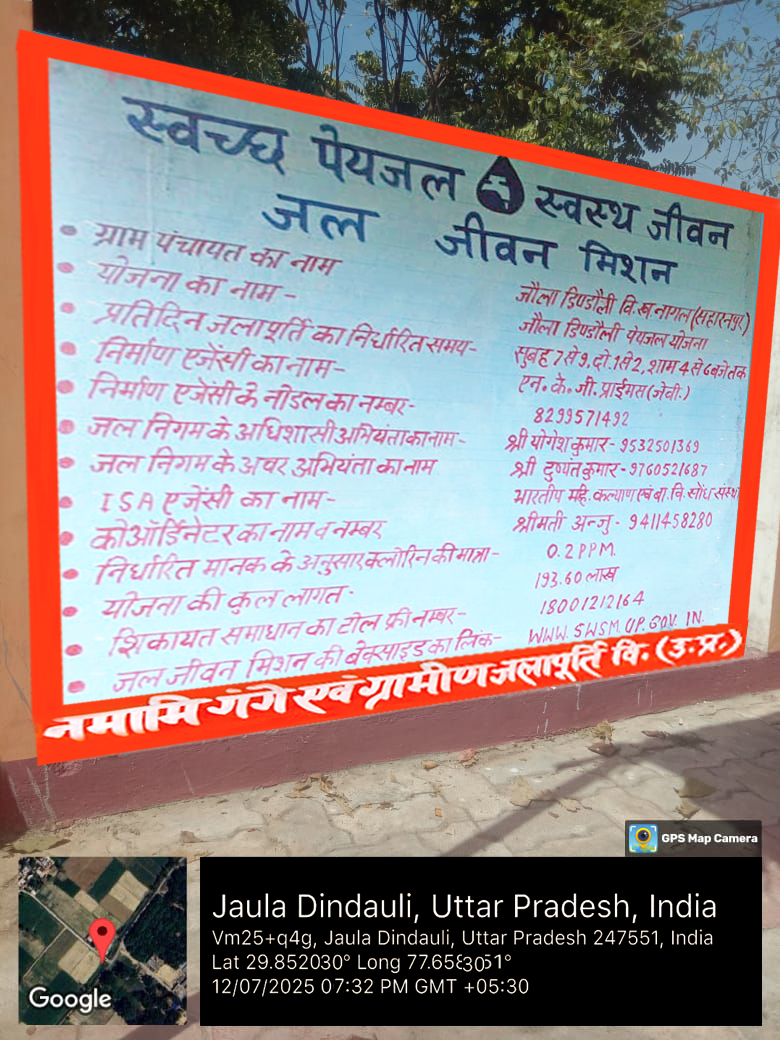 स्वच्छ पेयजल स्वस्थ जीवन
जल जीवन मिशन
• ग्राम पंचायत का नाम जौला डिण्डौली वि.ख. नागल (सहारनपुर)
• योजना का नाम - जौला डिण्डौली पेयजल योजना
• प्रतिदिन जलापूर्ति का निर्धारित समय- सुबह 7 से 9, दो. 1 से 2, शाम 4 से 6 बजे तक
• निर्माण एजेंसी का नाम- एन. के. जी. प्राईमस (जेवी.)
• निर्माण एजेंसी के नोडल का नम्बर- 8299571492
• जल निगम के अधिशासी अभियंता का नाम- श्री योगेश कुमार - 9532501369
• जल निगम के अवर अभियंता का नाम श्री दुष्यत कुमार - 9760521687
• ISA एजेंसी का नाम- भारतीय महि. कल्याण एवं बा. वि. सोध संस्थ
• कोऑर्डिनेटर का नाम व नम्बर श्रीमती अन्जु - 9411458280
• निर्धारित मानक के अनुसार क्लोरिन की मात्रा- 0.2 PPM.
• योजना की कुल लागत- 193.60 लाख
• शिकायत समाधान का टोल फ्री नम्बर- 18001212164
• जल जीवन मिशन की बेवसाइड का लिंक- WWW.SWSM.UP.GOV.IN.
नमामि गंगे एवं ग्रामीण जलापूर्ति वि. (उ.प्र.)
GPS Map Camera
Jaula Dindauli, Uttar Pradesh, India
Vm25+q4g, Jaula Dindauli, Uttar Pradesh 247551, India
Lat 29.852030° Long
12/07/2025 07:32 PM GMT +05:30
Google